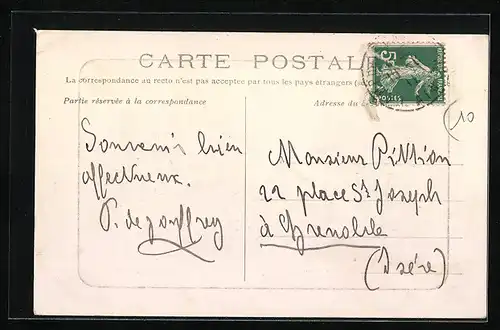 CARTE POSTALE
La correspondance au recto n'est pas acceptée par tous les pays étrangers
Partie réservée à la correspondance
Adresse du
5c
POSTES
10
Souvenir bien
affectueux.
P. de
Monsieur Pittion
22 place St Joseph
à Grenoble
(Isère)